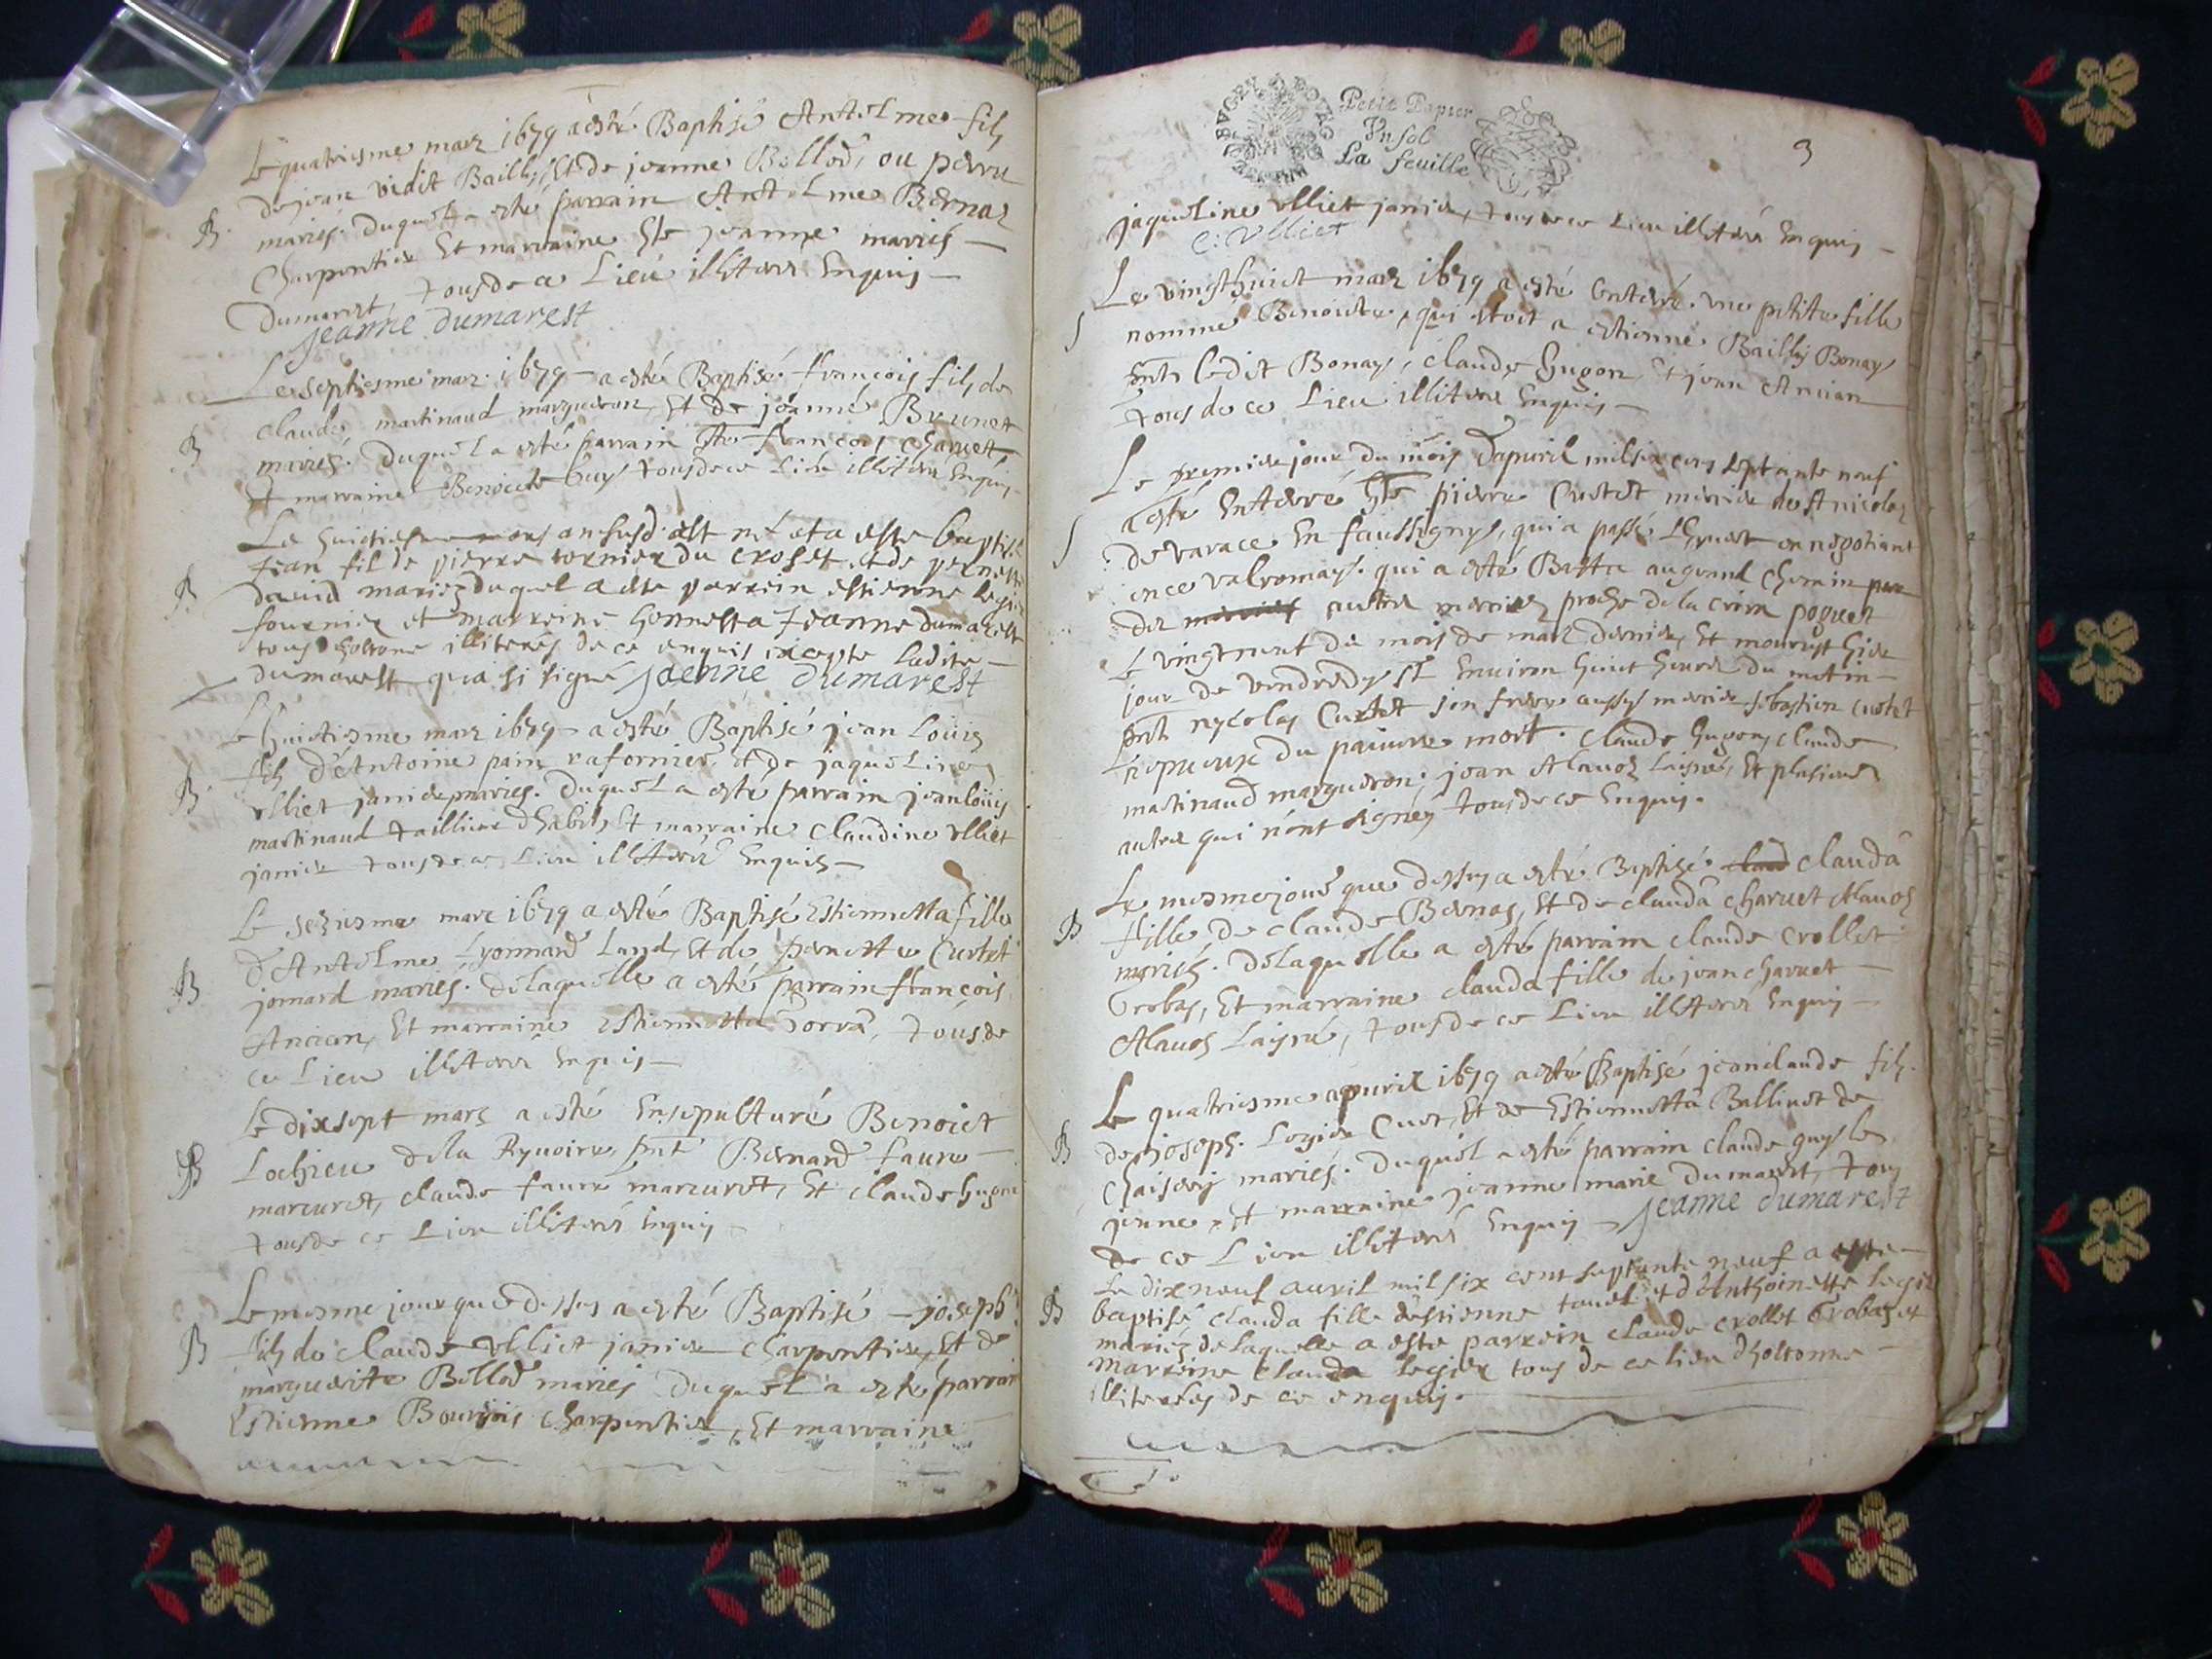 Le quatriesme mars 1679 a esté Baptisé Antelme filz
de jean vidit Bailly, Et de jeanne Bellod, ou perru
B mariés. Duquel a esté parrain Antelme Bernaz
Charpentier Et marraine hte jeanne mariés
Dumarest, tous de ce Lieu illiterés Enquis
jeanne dumarest
Le septiesme mars 1679 a esté Baptisé françois filz de
claude martinaud margueron, Et de jeanne Brunet
B mariés. Duquel a esté parrain hte françois charvet
Et marraine Benoicte Guy tous de ce Lieu illiterés Enquis
Le huictiesme mars an susd est né et a este baptisé
Jean fil de pierre tornier du croset et de pernette
B david mariez duquel a este parrein estienne legier
fournier et marreine honnesta Jeanne dumarest
tous dholtone illiterés de ce enquis excepte ladite
dumarest qui a si signé jaenne dumarest
Le huictiesme mars 1679 a esté Baptisé jean Louis
filz d'Antoine pain rafornier, et de jaqueline
B ulliet janier mariés. Duquel a esté parrain jean louis
martinaud tailleur d'habitz Et marraine Claudine ulliet
janier tous de ce Lieu illiterés Enquis
Le seziesme mars 1679 a esté Baptisé Estiennetta fille
d'Antelme Lyonnard Land, Et de pernette Curtet
B jomard mariés. De laquelle a esté parrain françois
Ancian, Et marraine Estiennetta Torra, tous de
ce Lieu illiterés Enquis
Le dixsept mars a esté Ensepulturé Benoict
B Lochieu de la Ryuoire, pnt Bernard faure
marcuret, claude faure marcuret, Et claude hugon
tous de ce Lieu illiterés Enquis
Le mesme jour que dessus a esté Baptisé joseph
B filz de claude ulliet janier charpentier, Et de
marguerite Bellod mariés Duquel a esté parrain
Estienne Bourgois charpentier, Et marraine
BVGEY
Petit Papier
Vn sol
La feuille
3
jaqueline ulliet janier, tous de ce Lieu illiterés Enquis
C: Vlliet
Le vingthuict mars 1679 a esté Enterré une petite fille
nommé Benoicte, qui estoit a estienne Bailly Bonay
pnts ledit Bonay, claude hugon, Et jean Ancian
tous de ce Lieu illiterés Enquis
Le premier jour du mois d'apuril mil six cens septante neuf
a esté Enterré hte pierre Curtet mercier de st nicolas
de varace En faussigny, qui a passé L'hyuert en negotiant
en ce valromay. qui a esté Battu au grand chemin par
des autres merciers proche de la croix poguet
Le vingtneuf du mois de mars dernier, Et mourust hier
jour de vendredy st Environ huict heures du matin
pnts nycolas Curtet son frere aussy mercier sebastien curtet
nepueux du pauure mort. claude hugon, claude
martinaud marguéron, jean Alauoz Laisné, Et plusieurs
autres qui n'ont signés tous de ce Enquis.
Le mesme jour que dessus a esté Baptisé clauda
B fille de claude Bernaz, Et de clauda charuet Alauoz
mariés. De laquelle a esté parrain claude crollet
Grobas, Et marraine clauda fille de jean charuet
Alauoz Laisné, tous de ce Lieu illiterés Enquis
Le quatriesme apuril 1679 a esté Baptisé jean claude filz
B de joseph Legier Cuet, Et de Estiennetta Ballivet de
chaisery mariés. Duquel a esté parrain claude guy le
jeune, Et marraine jeanne marie Dumarest, tous
de ce Lieu illiterés Enquis jeanne dumarest
Le dixneuf auril mil six cent septante neuf a este
B baptisé clauda fille destienne tauel et d'Anthoinette legier
mariéz de laquelle a este parrein claude crollet Grobaz et
marreine clauda legier tous de ce lieu dholtonne
illiterés de ce enquis.